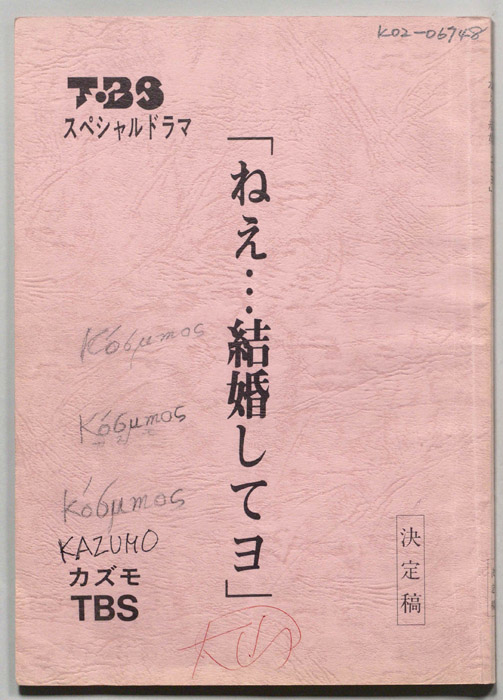 K02-06748
T・BS
スペシャルドラマ
「ねえ…結婚してヨ」
Kósmos
Kósmos
Kósmos
KAZUMO
カズモ
TBS
決定稿